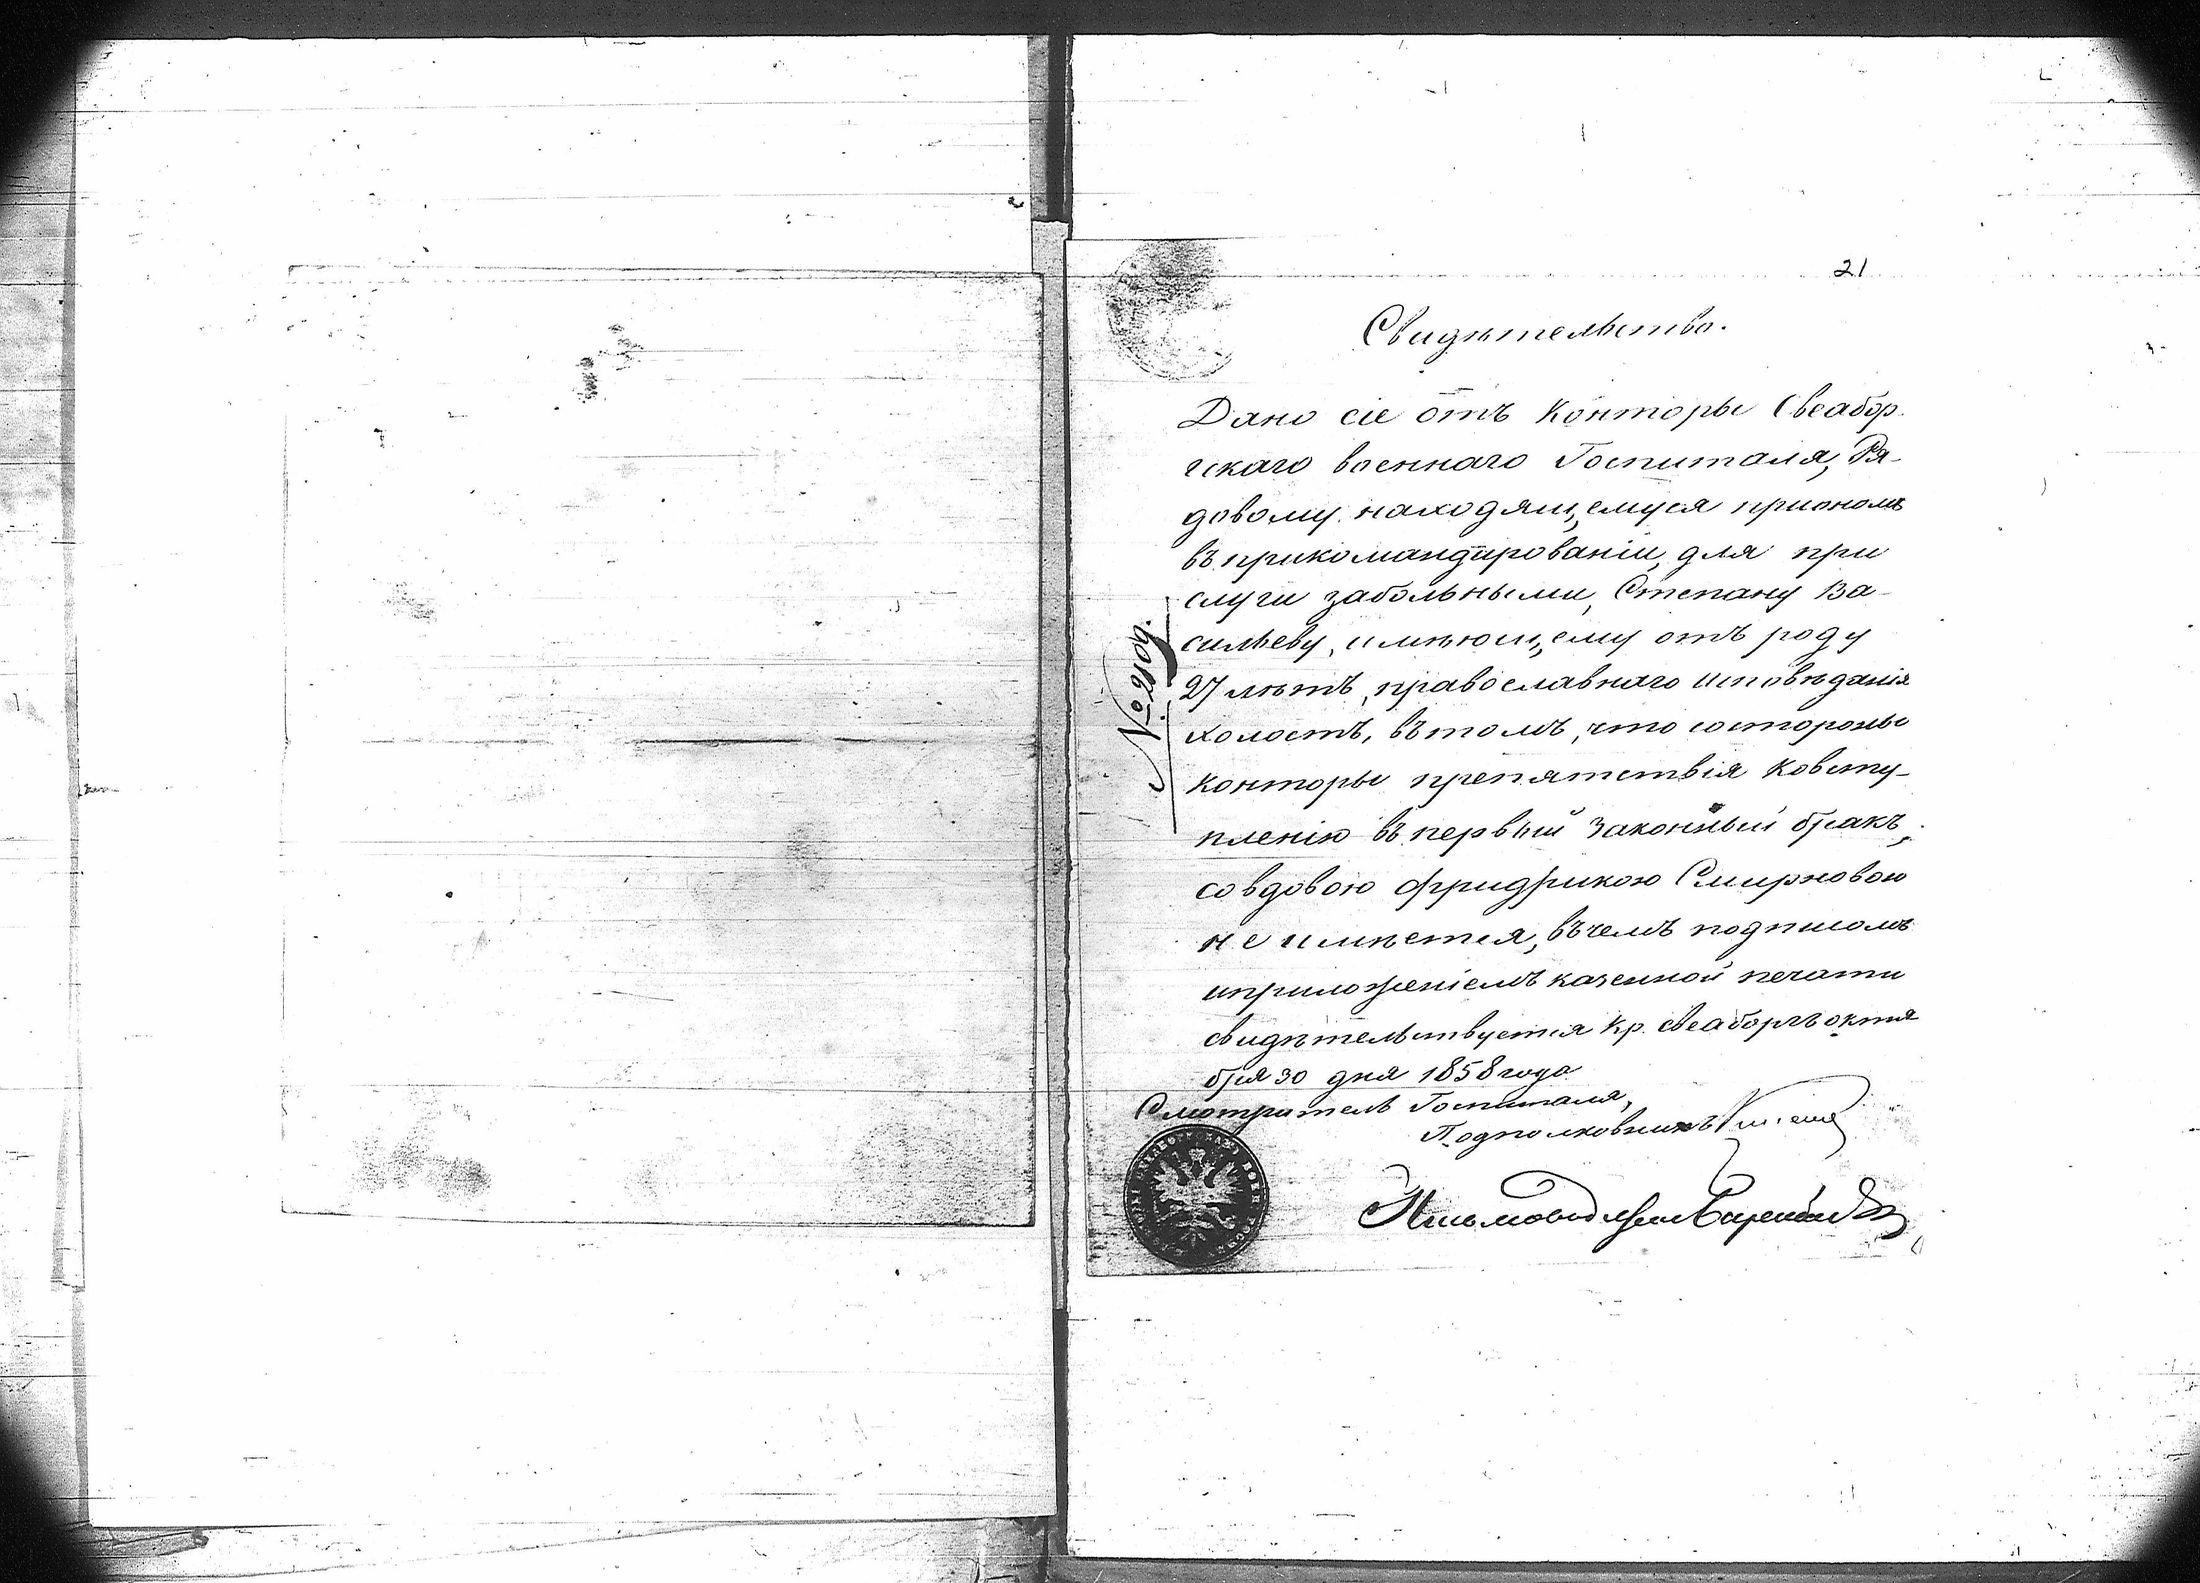 21
Свидѣтельство.
Дано сіе отъ Конторы Свеабор
гскаго военнаго Госпиталя, Ря-
довому находящемуся приономъ
въ прикомандированіи, для при
слуги забольными, Степану Ва-
сильеву, имѣющему отъ роду
27 лѣтъ, православнаго исповѣданія
холостъ, вътомъ, что состороны
конторы препятствія ковсту-
пленію въ первый законный бракъ,
совдовою Фридрикою Смирновою
не имѣется, въчемъ подписомъ
иприложеніемъ казенной печати
свидѣтельствуется Кр. Свеаборгъ октя
бря 30 дня 1858 года
Смотритель Госпиталя,
Подполковникъ
Письмоводитель
№ 2109.